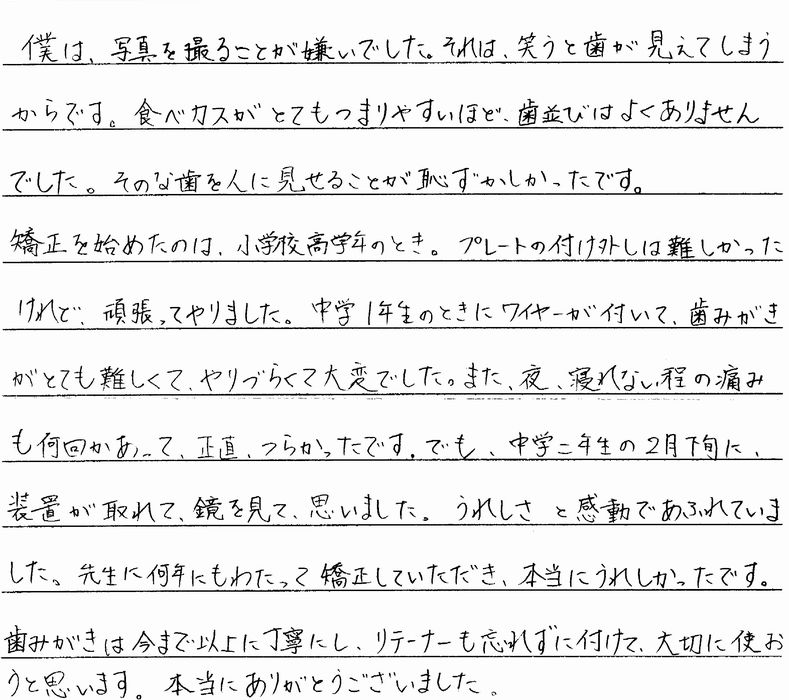 僕は、写真を撮ることが嫌いでした。それは、笑うと歯が見えてしまう
からです。食べカスがとてもつまりやすいほど、歯並びはよくありません
でした。そのな歯を人に見せることが恥ずかしかったです。
矯正を始めたのは、小学校高学年のとき。プレートの付け外しは難しかった
けれど、頑張ってやりました。中学1年生のときにワイヤーが付いて、歯みがき
がとても難しくて、やりづらくて大変でした。また、夜、寝れない程の痛み
も何回かあって、正直、つらかったです。でも、中学二年生の2月下旬に、
装置が取れて、鏡を見て、思いました。うれしさと感動であふれていま
した。先生に何年にもわたって矯正していただき、本当にうれしかったです。
歯みがきは今まで以上に丁寧にし、リテーナーも忘れずに付けて、大切に使お
うと思います。本当にありがとうございました。